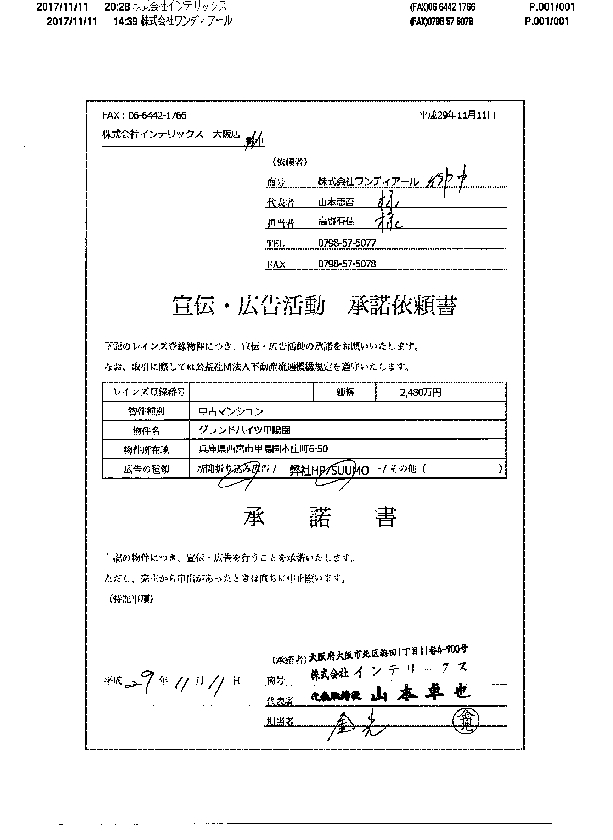 2017/11/11 20:28 株式会社インテリックス (FAX)06 6442 1766 P.001/001
2017/11/11 14:39 株式会社ワンディアール (FAX)0798 57 5078 P.001/001
FAX：06-6442-1766 平成29年11月11日
株式会社インテリックス 大阪店
（依頼者）
商号 株式会社ワンディアール 御中
代表者 山本 様
担当者 様
TEL 0798-57-5077
FAX 0798-57-5078
宣伝・広告活動 承諾依頼書
下記のレインズ登録物件につき、宣伝・広告活動の承諾をお願いいたします。
なお、取引に際しては公益社団法人不動産流通機構規定を遵守いたします。
レインズ登録番号 価格 2,490万円
物件種別 中古マンション
物件名 グランドハイツ甲陽園
物件所在地 兵庫県西宮市甲陽園本庄町6-50
広告の種類 新聞折り込み広告/ 弊社HP/SUUMO -/その他（ ）
承諾書
上記の物件につき、宣伝・広告を行うことを承諾いたします。
ただし、売主から申出があったときは直ちに中止願います。
（特記事項）
平成29年11月11日
（承諾者）大阪府大阪市北区梅田1丁目11番4-900号
商号 株式会社インテリックス
代表者 代表取締役 山本卓也
担当者 金光